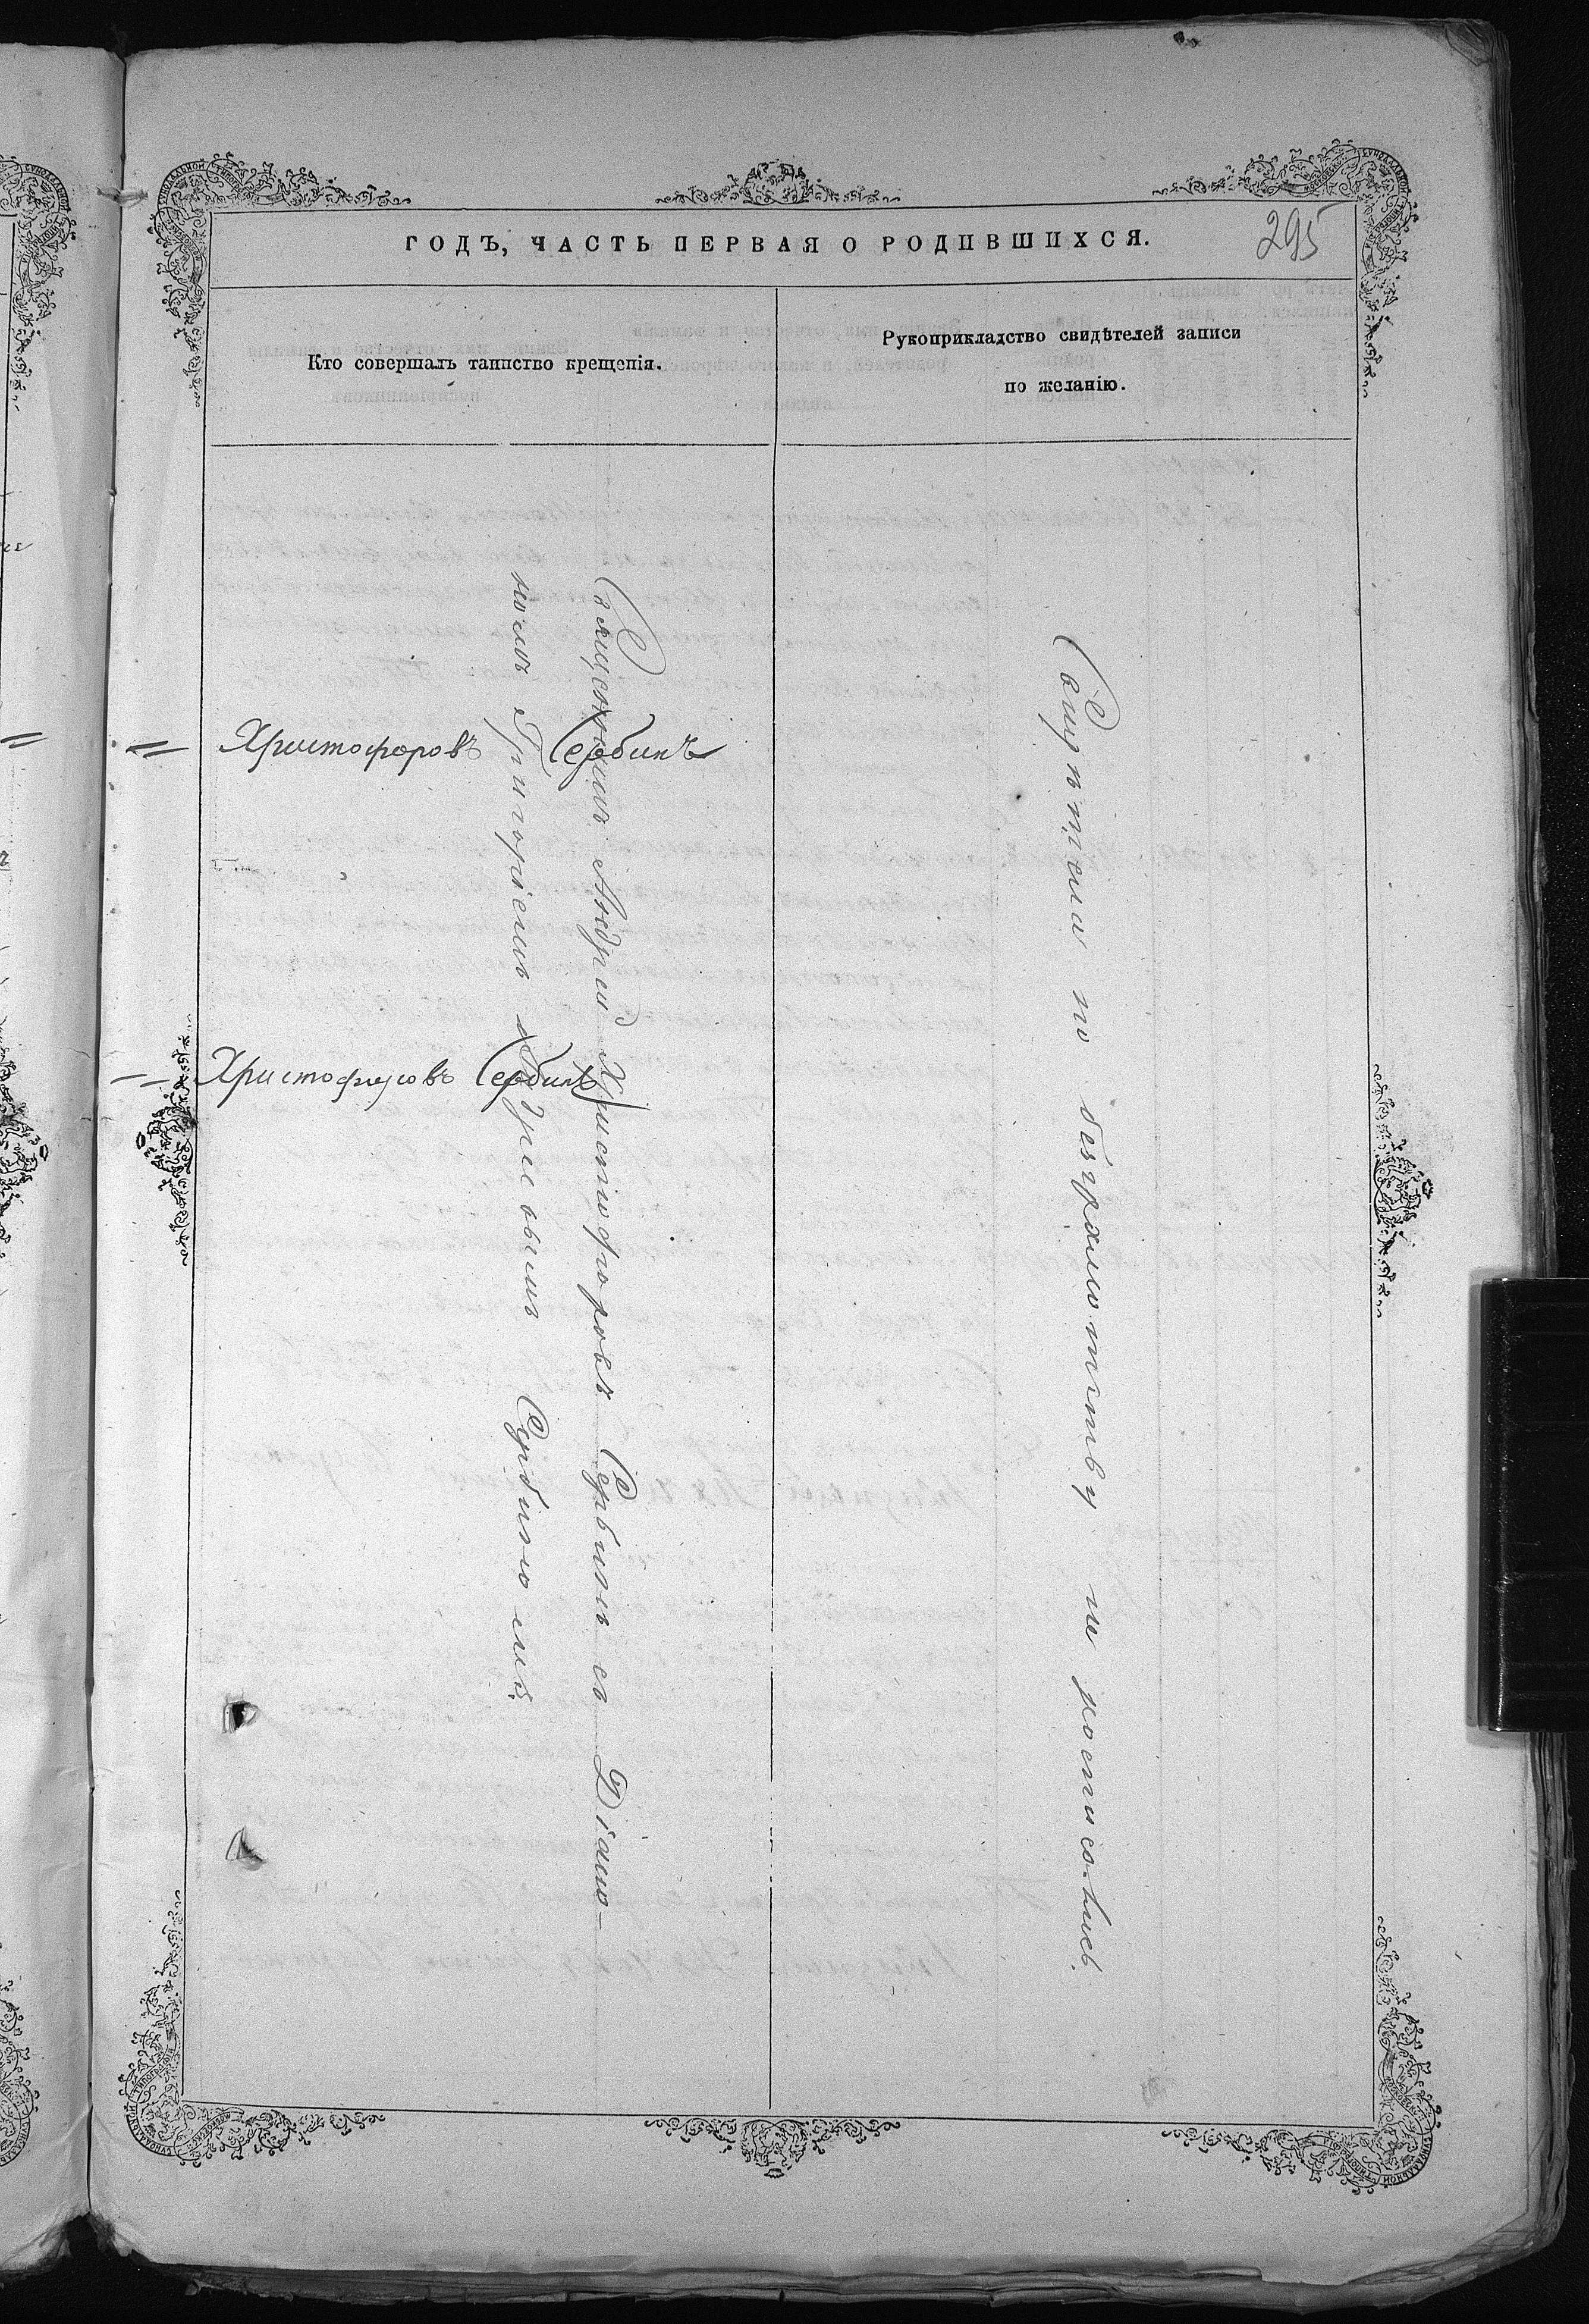 ГОДЪ, ЧАСТЬ ПЕРВАЯ О РОДИВШИХСЯ.
295
Кто совершалъ таинство крещенія.
Рукоприкладство свидѣтелей записи
по желанію.
Христофоровъ Сербинъ
Христофоровъ Сербинъ
Священникъ Андрей Христофоровъ Сербинъ съ Діако-
номъ Григоріемъ Андреевымъ Сербиновымъ
Свидѣтели по безграмотству не росписались